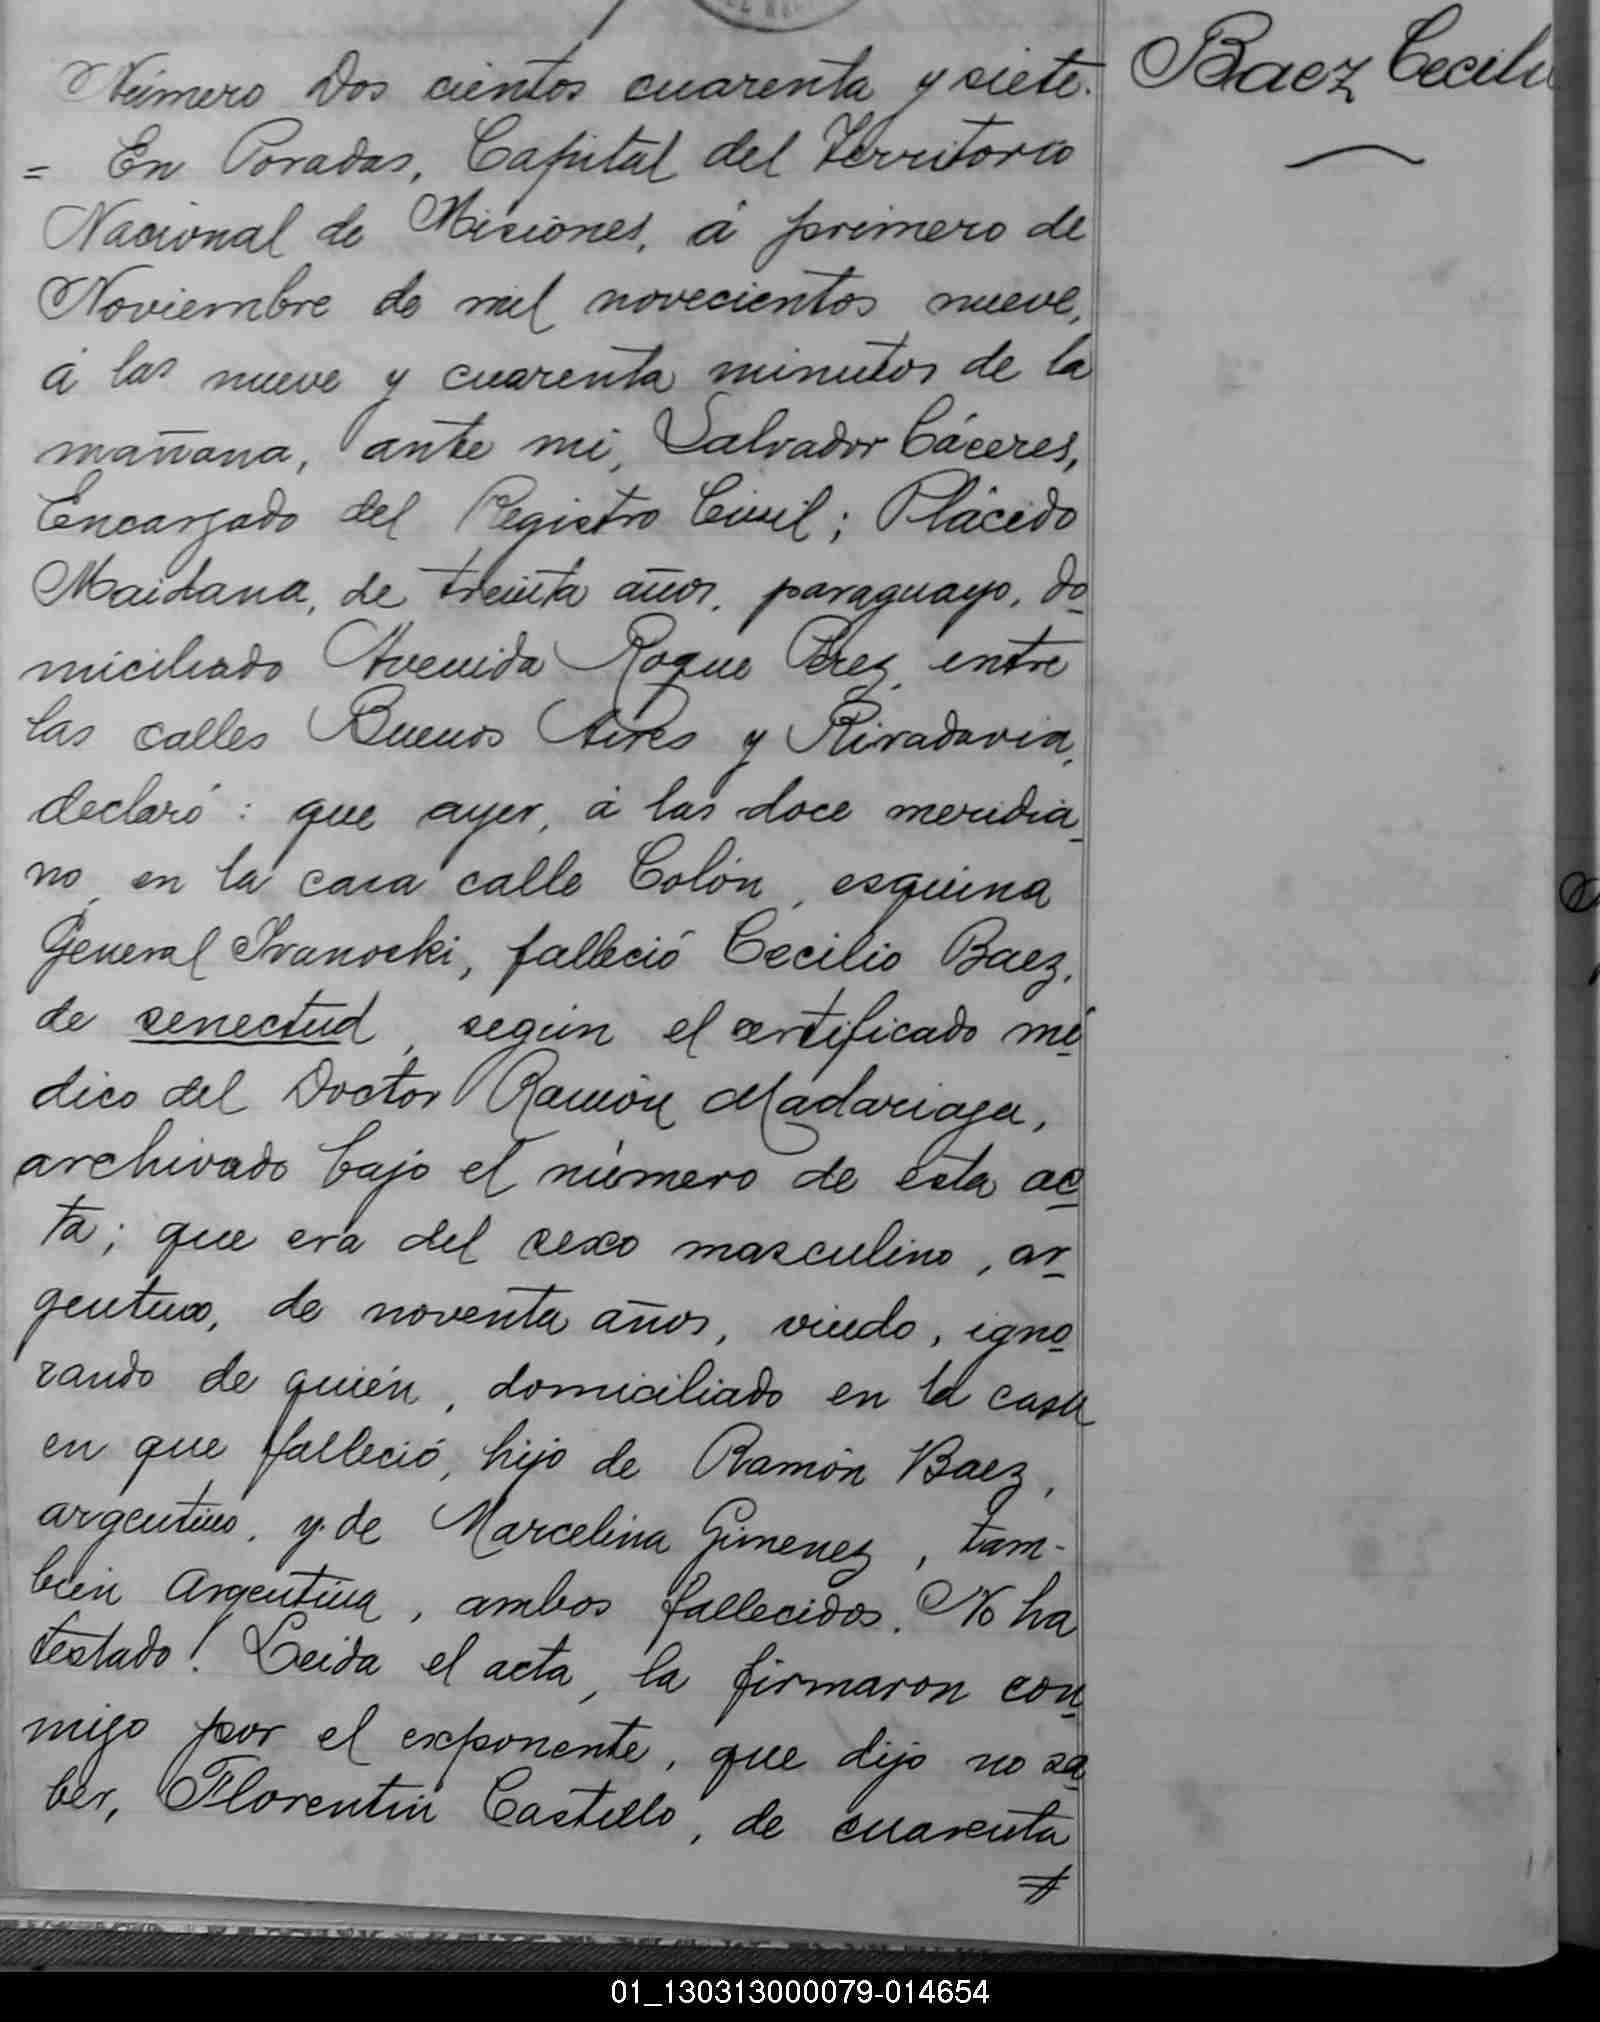 Número Dos cientos cuarenta y siete.
Baez Cecilio
= En Posadas, Capital del Territorio
Nacional de Misiones, á primero de
Noviembre de mil novecientos nueve,
á las nueve y cuarenta minutos de la
mañana, ante mi, Salvador Cáceres,
Encargado del Registro Civil; Plácido
Maidana, de treinta años, paraguayo, do
miciliado Avenida Roque Perez, entre
las calles Buenos Aires y Rivadavia,
declaró: que ayer, á las doce meridia
no, en la casa calle Colón, esquina
General Ivanoski, falleció Cecilio Baez,
de senectud, según el certificado mé
dico del Doctor Ramón Madariaga,
archivado bajo el número de esta ac
ta; que era del sexo masculino, ar
gentino, de noventa años, viudo, igno
rando de quién, domiciliado en la casa
en que falleció, hijo de Ramón Baez,
argentino, y de Marcelina Gimenez, tam-
bien Argentina, ambos fallecidos. No ha
testado! Leida el acta, la firmaron con
migo por el exponente, que dijo no sa
ber, Florentin Castello, de cuarenta
01_130313000079-014654